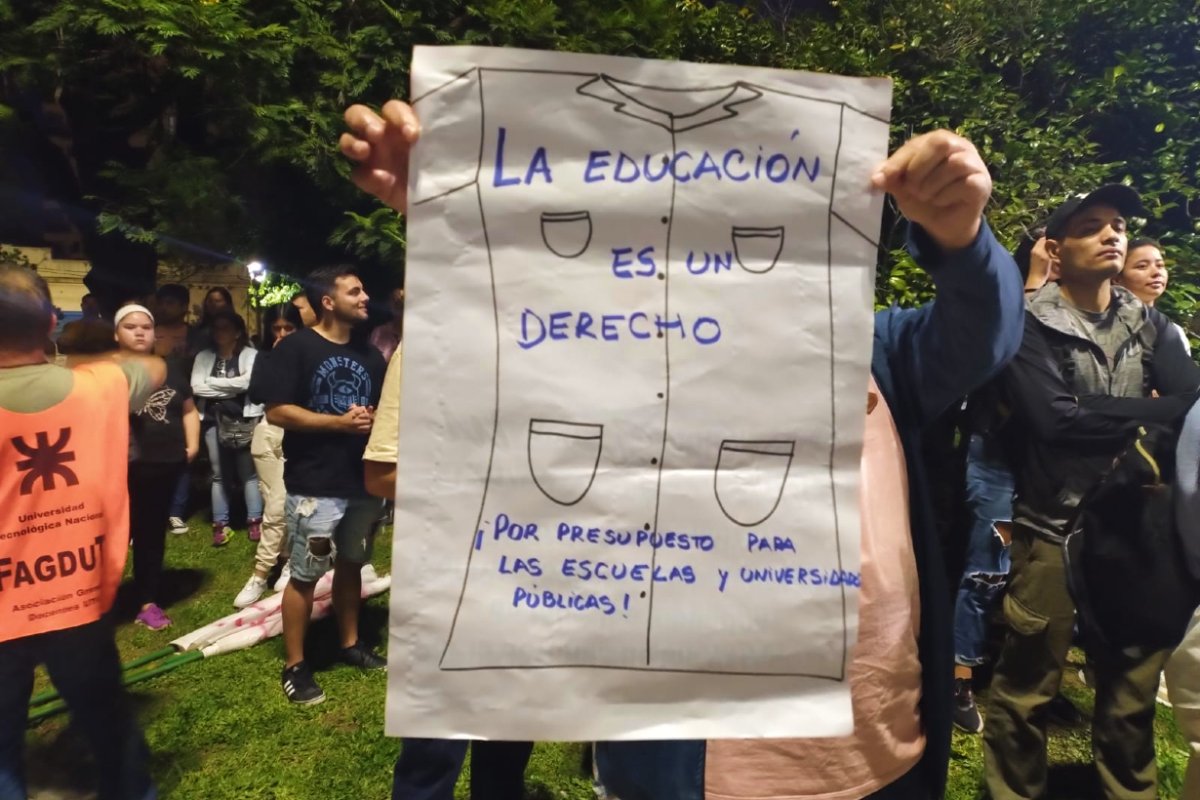 LA EDUCACIÓN
ES UN
DERECHO
¡POR PRESUPUESTO PARA
LAS ESCUELAS Y UNIVERSIDADES
PÚBLICAS!
Universidad
FAGDUT
Asociación
Docentes
MONSTERS